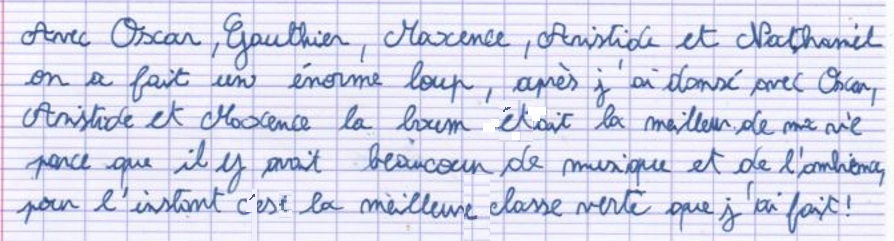 Avec Oscar, Gauthier, Maxence, Aristide et Nathanël
on a fait un énorme loup, après j'ai dansé avec Oscar,
Aristide et Maxence la boum était la meilleur de ma vie
parce que il y avait beaucoup de musique et de l'ambience,
pour l'instant c'est la meilleure classe verte que j'ai fait!